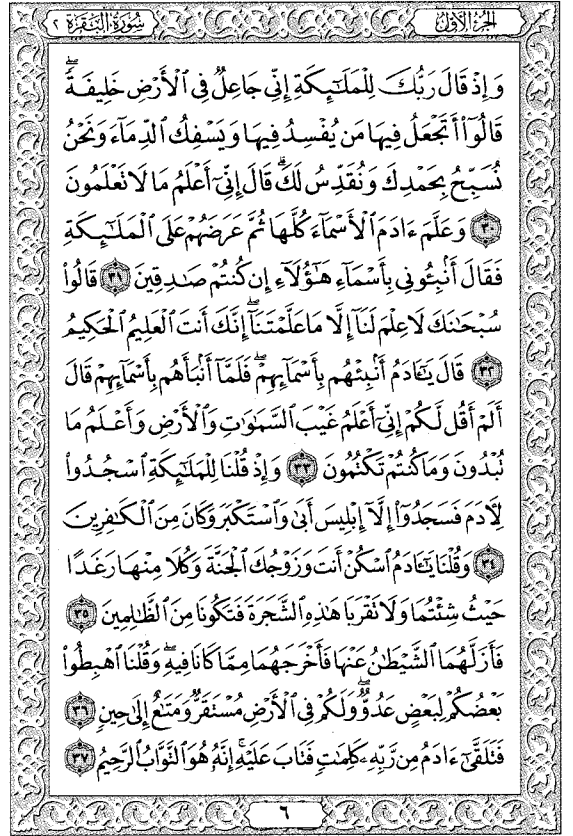 الجزء الأول
سورة البقرة ٢
وَإِذْ قَالَ رَبُّكَ لِلْمَلَٰٓئِكَةِ إِنِّى جَاعِلٌ فِى ٱلْأَرْضِ خَلِيفَةً ۖ
قَالُوٓا۟ أَتَجْعَلُ فِيهَا مَن يُفْسِدُ فِيهَا وَيَسْفِكُ ٱلدِّمَآءَ وَنَحْنُ
نُسَبِّحُ بِحَمْدِكَ وَنُقَدِّسُ لَكَ ۖ قَالَ إِنِّىٓ أَعْلَمُ مَا لَا تَعْلَمُونَ
٣٠ وَعَلَّمَ ءَادَمَ ٱلْأَسْمَآءَ كُلَّهَا ثُمَّ عَرَضَهُمْ عَلَى ٱلْمَلَٰٓئِكَةِ
فَقَالَ أَنۢبِـُٔونِى بِأَسْمَآءِ هَٰٓؤُلَآءِ إِن كُنتُمْ صَٰدِقِينَ ٣١ قَالُوا۟
سُبْحَٰنَكَ لَا عِلْمَ لَنَآ إِلَّا مَا عَلَّمْتَنَآ ۖ إِنَّكَ أَنتَ ٱلْعَلِيمُ ٱلْحَكِيمُ
٣٢ قَالَ يَٰٓـَٔادَمُ أَنۢبِئْهُم بِأَسْمَآئِهِمْ ۖ فَلَمَّآ أَنۢبَأَهُم بِأَسْمَآئِهِمْ قَالَ
أَلَمْ أَقُل لَّكُمْ إِنِّىٓ أَعْلَمُ غَيْبَ ٱلسَّمَٰوَٰتِ وَٱلْأَرْضِ وَأَعْلَمُ مَا
تُبْدُونَ وَمَا كُنتُمْ تَكْتُمُونَ ٣٣ وَإِذْ قُلْنَا لِلْمَلَٰٓئِكَةِ ٱسْجُدُوا۟
لِـَٔادَمَ فَسَجَدُوٓا۟ إِلَّآ إِبْلِيسَ أَبَىٰ وَٱسْتَكْبَرَ وَكَانَ مِنَ ٱلْكَٰفِرِينَ
٣٤ وَقُلْنَا يَٰٓـَٔادَمُ ٱسْكُنْ أَنتَ وَزَوْجُكَ ٱلْجَنَّةَ وَكُلَا مِنْهَا رَغَدًا
حَيْثُ شِئْتُمَا وَلَا تَقْرَبَا هَٰذِهِ ٱلشَّجَرَةَ فَتَكُونَا مِنَ ٱلظَّٰلِمِينَ ٣٥
فَأَزَلَّهُمَا ٱلشَّيْطَٰنُ عَنْهَا فَأَخْرَجَهُمَا مِمَّا كَانَا فِيهِ ۖ وَقُلْنَا ٱهْبِطُوا۟
بَعْضُكُمْ لِبَعْضٍ عَدُوٌّ ۖ وَلَكُمْ فِى ٱلْأَرْضِ مُسْتَقَرٌّ وَمَتَٰعٌ إِلَىٰ حِينٍ ٣٦
فَتَلَقَّىٰٓ ءَادَمُ مِن رَّبِّهِۦ كَلِمَٰتٍ فَتَابَ عَلَيْهِ ۚ إِنَّهُۥ هُوَ ٱلتَّوَّابُ ٱلرَّحِيمُ ٣٧
٦